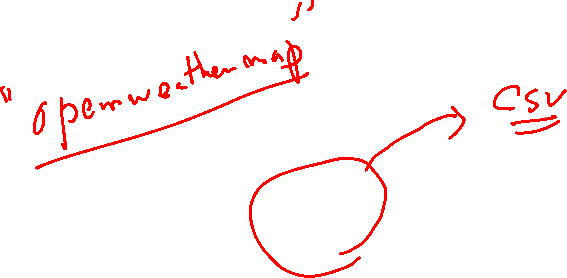 "openweathermap"
CSV